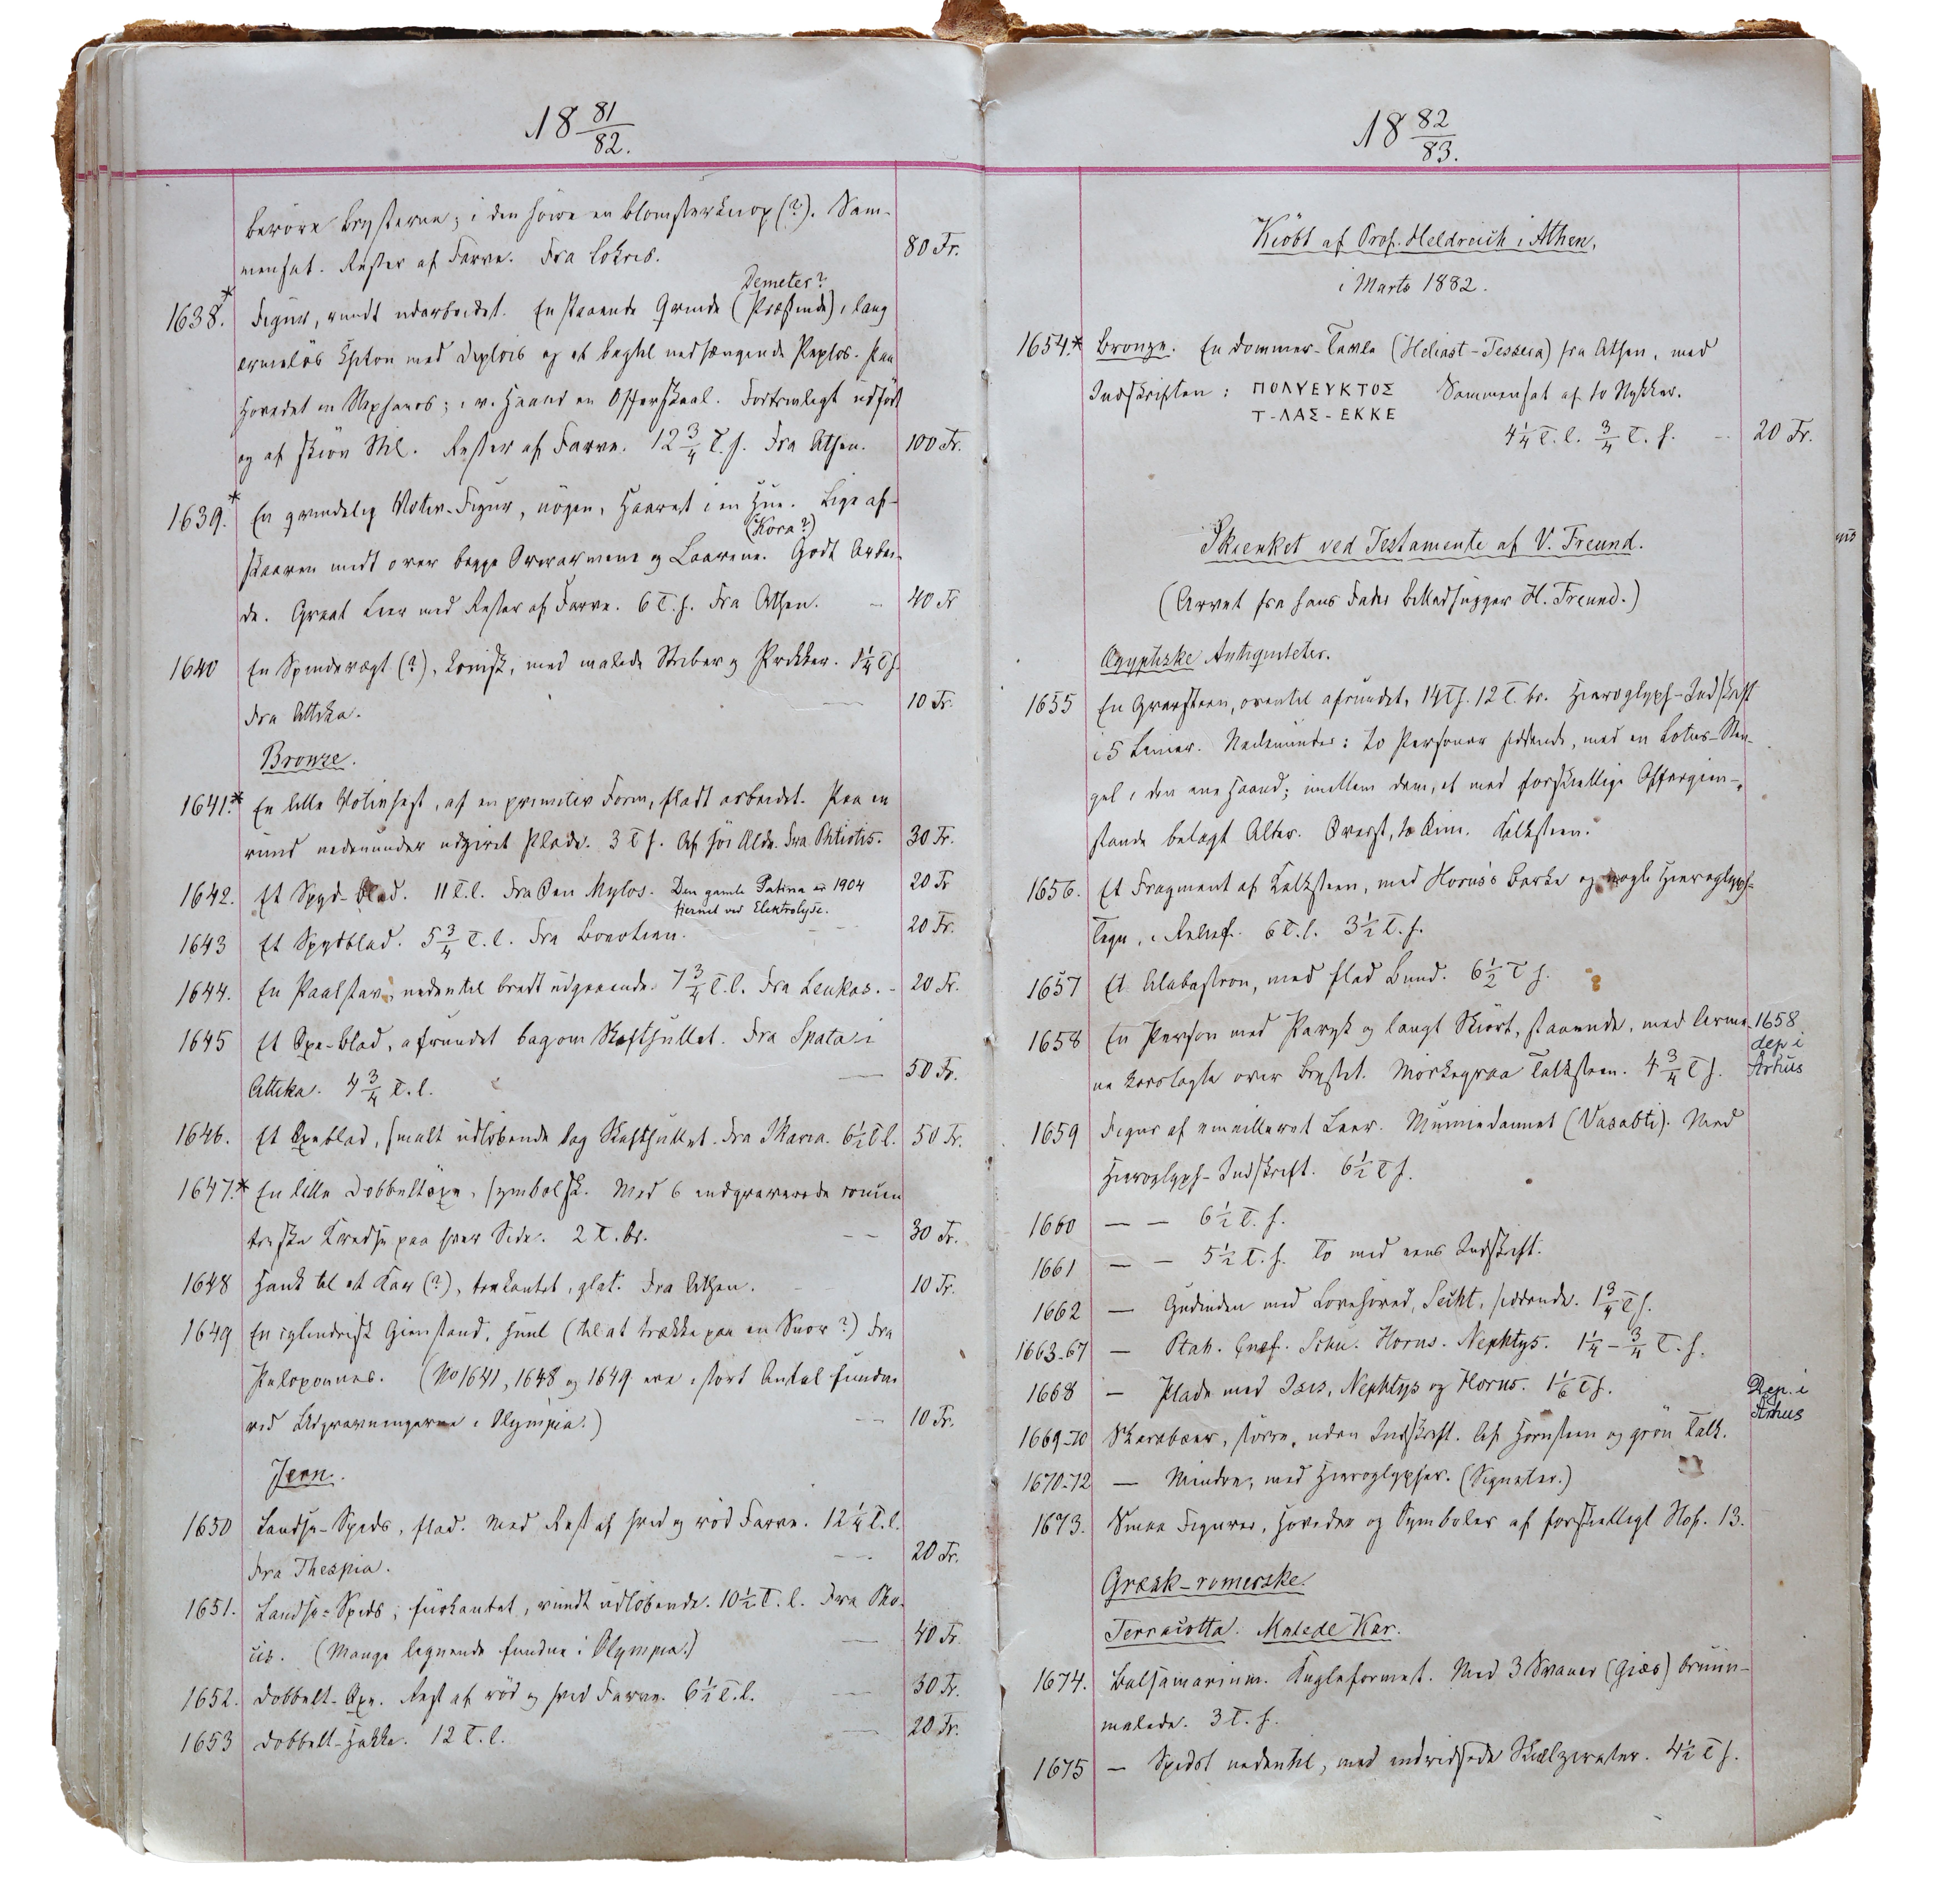 18 81/82.
beröre Brysterne; i den höire en Blomsterknop (?). Sam-
mensat. Rester af Farve. Fra Lokris. 80 Fr.
Demeter?
1638.* Figur, rundt udarbeidet. En staaende Qvinde (Præstinde) i lang
ærmelös Chiton med Diplois og et bagtil nedhængende Peplos. Paa
Hovedet en Stephanos; i v. Haand en Offerskaal. Fortrinligt udfört
og af skiön Stil. Rester af Farve. 12 3/4 T. h. Fra Athen. 100 Fr.
1639.* En qvindelig Votiv-Figur, nögen, Haaret i en Hue. Lige af-
(Kora?)
skaaren midt over begge Overarmene og Laarene. Godt Arbei-
de. Graat Leer med Rester af Farve. 6 T. h. Fra Athen. – 40 Fr
1640 En Spindevægt (?), konisk, med malede Striber og Prikker. 1 1/4 T h.
Fra Attika. — 10 Fr.
Bronze.
1641.* En lille Votivhest, af en primitiv Form, fladt arbeidet. Paa en
rund nedenunder udziret Plade. 3 T h. Af höi Ælde. Fra Phtiotis. 30 Fr.
1642. Et Spyd-Blad. 11 T. l. Fra Øen Mylos. Den gamle Patina er 1904 20 Fr
fjernet ved Elektrolyse.
1643 Et Spydblad. 5 3/4 T. l. Fra Boeotien. – – 20 Fr.
1644. En Paalstav, nedentil bredt udgaaende. 7 3/4 T. l. Fra Leukas. – 20 Fr.
1645 Et Øxe-Blad, afrundet bagom Skafthullet. Fra Spata i
Attika. 4 3/4 T. l. — 50 Fr.
1646. Et Øxeblad, smalt udlöbende bag Skafthullet. Fra Ikaria. 6 1/2 T l. 50 Fr.
1647.* En lille Dobbeltöxe, symbolsk. Med 6 indgraverede concen
triske Kredse paa hver Side. 2 T. br. – – 30 Fr.
1648 Hank til et Kar (?), trekantet, glat. Fra Athen. – 10 Fr.
1649 En cylindrisk Gienstand, huul (til at trække paa en Snor?) Fra
Peloponnes. (No 1641, 1648 og 1649 ere i stort Antal fundne
ved Udgravningerne i Olympia.) – – 10 Fr.
Jern.
1650 Landse-Spids, flad. Med Rest af hvid og röd Farve. 12 1/4 T. l.
Fra Thespia. – – 20 Fr.
1651. Landse-Spids, fiirkantet, rundt udlöbende. 10 1/2 T. l. Fra Pho-
cis. (Mange lignende fundne i Olympia.) — 40 Fr.
1652. Dobbelt-Øxe. Rest af röd og hvid Farve. 6 1/2 T. l. — 30 Fr.
1653 Dobbelt-Hakke. 12 T. l. — 20 Fr.
18 82/83.
Kiöbt af Prof. Heldreich i Athen,
i Marts 1882.
1654.* Bronze. En Dommer-Tavle (Heliast-Tessera) fra Athen, med
Indskriften: ΠΟΛΥΕΥΚΤΟΣ Sammensat af to Stykker.
Τ-ΛΑΣ-ΕΚΚΕ
4 1/4 T. l. 3/4 T. h. – 20 Fr.
Skienket ved Testamente af V. Freund.
(Arvet fra hans Fader Billedhugger H. Freund.)
Ægyptiske Antiquiteter.
1655 En Gravsteen, oventil afrundet, 14 T h. 12 T. br. Hieroglyph-Indskrift
i 5 Linier. Nedenunder: to Personer siddende, med en Lotus-Sten-
gel i den ene Haand; imellem dem, et med forskiellige Offergien-
stande belagt Alter. Øverst, to Øine. Kalksteen.
1656. Et Fragment af Kalksteen, med Horus's Barke og nogle Hieroglyph-
Tegn, i Relief. 6 T. l. 3 1/2 T. h.
1657 Et Alabastron, med flad Bund. 6 1/2 T h.
1658 En Person med Paryk og langt Skiört, staaende, med Arme-
ne korslagte over Brystet. Mörkegraa Talksteen. 4 3/4 T h.
1658
dep i
Århus
1659 Figur af emailleret Leer. Mumiedannet (Vasabti). Med
Hieroglyph-Indskrift. 6 1/2 T h.
1660 — — 6 1/2 T. h.
1661 — — 5 1/2 T. h. To med eens Indskrift.
1662 — Gudinden med Lövehoved, Secht, siddende. 1 3/4 T h.
1663-67 — Ptah. Gnef. Schu. Horus. Nephtys. 1 1/4 – 3/4 T. h.
1668 — Plade med Isis, Nephtys og Horus. 1 1/6 T h.
Dep. i
Århus
1669-70 Skarabæer, större, uden Indskrift. Af Hornsteen og grön Talk.
1670-72 — Mindre, med Hieroglypher. (Signeter.)
1673. Smaa Figurer, Hoveder og Symboler af forskielligt Stof. 13.
Græsk-romerske.
Terracotta. Malede Kar.
1674. Balsamarium. Kugleformet. Med 3 Svaner (Giæs) bruun-
malede. 3 T. h.
1675 — Spidst nedentil, med indridsede Skælzirater. 4 1/2 T h.